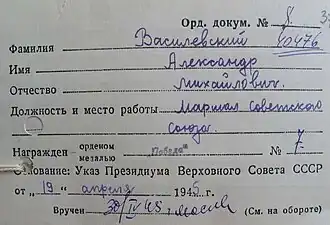 Орд. докум. № 8
Фамилия Василевский 10476
Имя Александр
Отчество Михайлович.
Должность и место работы Маршал Советского
Союза.
Награжден орденом медалью "Победа" № 7
Основание: Указ Президиума Верховного Совета СССР
от „19“ апреля 1945 г.
Вручен 30/IV 45 г. (См. на обороте)